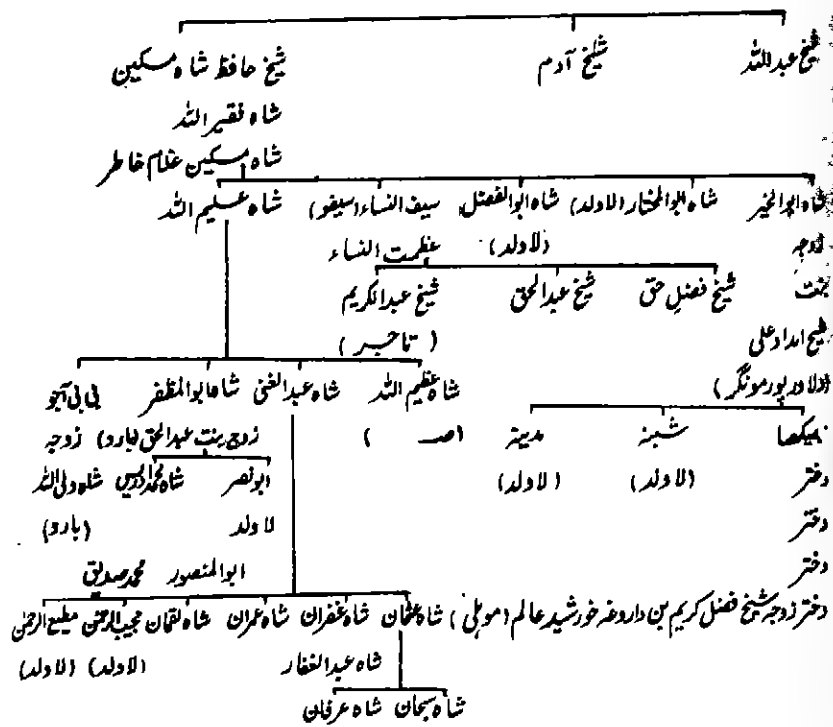 شیخ عبداللہ شیخ آدم شیخ حافظ شاہ مسکین
شاہ فقیر اللہ
شاہ مسکین غلام خاطر
شاہ ابوالخیر شاہ ابوالمختار (لاولد) شاہ ابوالفضل سیف النساء (سیفو) شاہ علیم اللہ
زوجہ (لاولد) عظمت النساء
بنت شیخ فضل حق شیخ عبدالحق شیخ عبدالکریم
شیخ امداد علی (تاجر)
(دلاور پور مونگر) شاہ عظیم اللہ شاہ عبدالغنی شاہ ابوالمظفر بی بی آجو
شبنہ مدینہ (صـ ) زوج بنت عبدالحق (بارو) زوجہ
دختر (لاولد) (لاولد) ابونصر شاہ محمد ادریس شاہ ولی اللہ
دختر لاولد (بارو)
دختر ابوالمنصور محمد صدیق
دختر زوجہ شیخ فضل کریم بن داروغہ خورشید عالم (موہلی) شاہ عثمان شاہ غفران شاہ عمران شاہ لقمان مجیب الرحمٰن مطیع الرحمٰن
شاہ عبدالغفار (لاولد) (لاولد)
شاہ سبحان شاہ عرفان